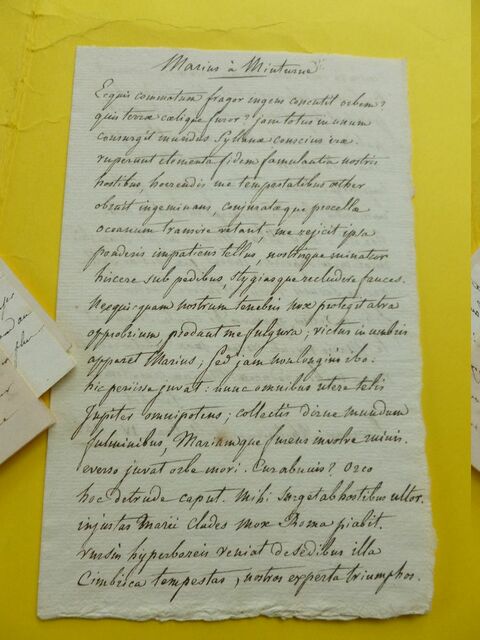 Marius à Minturne
Ecquis commotum fragor ingens concutit orbem?
quis terræ cælique furor? jam totus in unum
consurgit mundus Syllanæ conscius iræ.
ruperunt elementa fidem famulantia nostris
hostibus horrendis me tempestatibus æther
obruit ingeminans, conjuratæque procellæ
oceanum transire vetant; me rejicit ipsa
ponderis impatiens tellus, nostrisque minatur
hiscere sub pedibus, stygiasque recludere fauces.
Nequicquam nostrum tenebris nox protegit atra
opprobrium produnt me fulgura; victus in umbris
apparet Marius; sed jam non longius ibo.
hic periisse juvat: nunc omnibus utere telis
Jupiter omnipotens; collectis dirue mundum
fulminibus, Mariumque furens involve ruinis.
everso juvat orbe mori. Cur abnuis? Orco
hoc detrude caput. Mihi surget ab hostibus ultor.
injustas Marii clades mox Roma piabit.
rursus hyperboreis veniat de sedibus illa
Cimbrica tempestas, nostros experta triumphos.